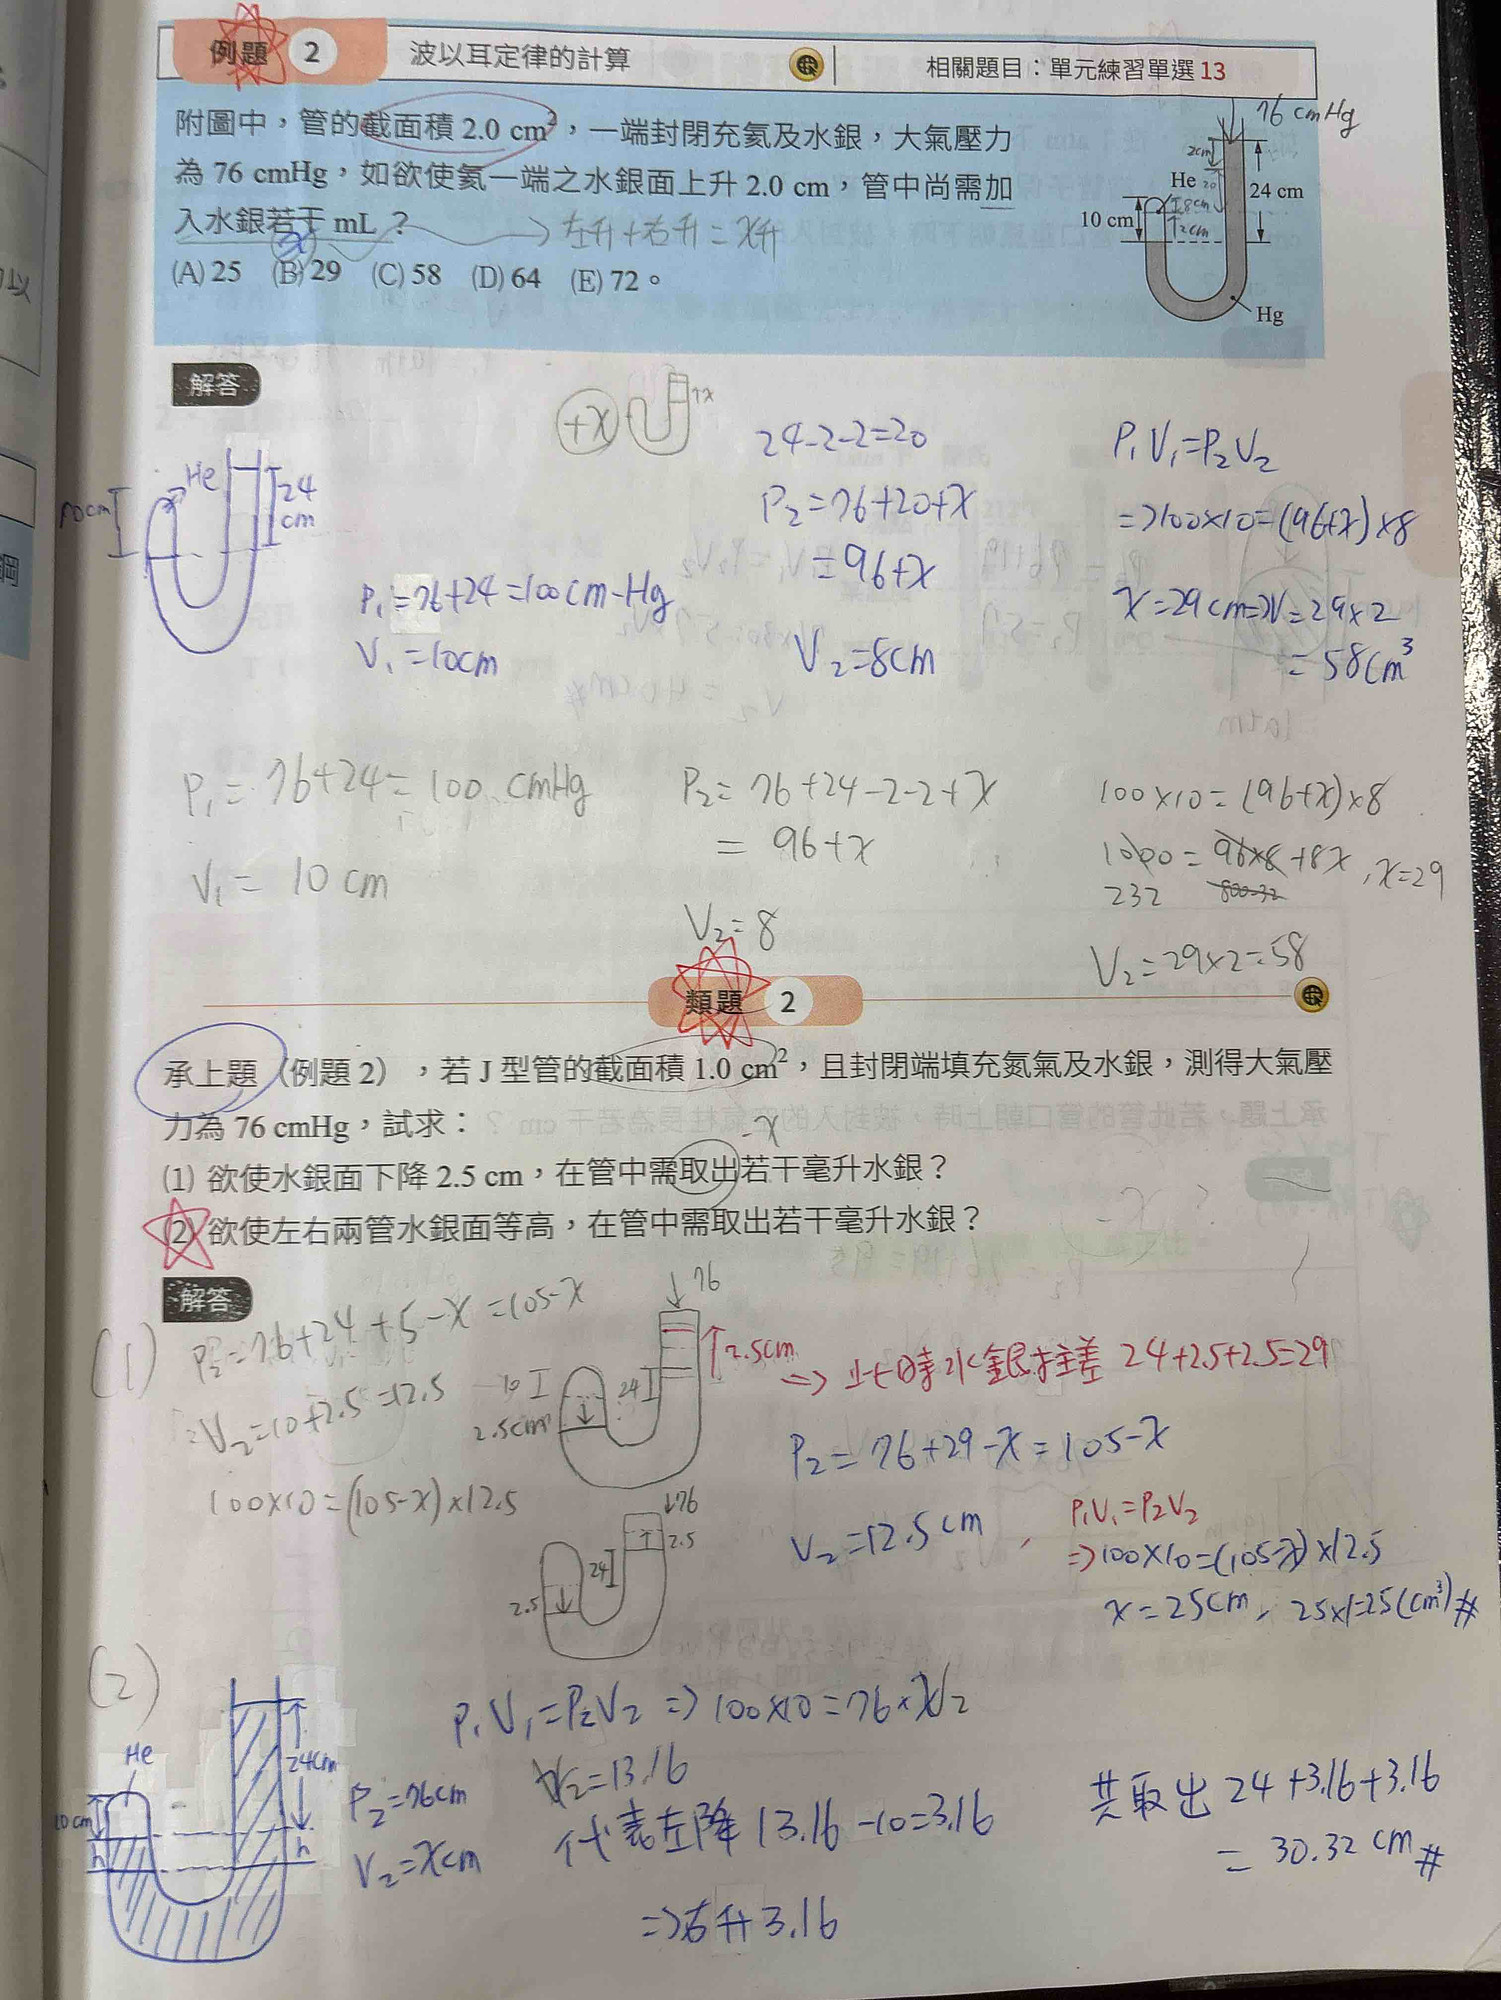 例題 2 波以耳定律的計算 相關題目：單元練習單選 13
附圖中，管的截面積 2.0 cm²，一端封閉充氦及水銀，大氣壓力
為 76 cmHg，如欲使氦一端之水銀面上升 2.0 cm，管中尚需加
入水銀若干 mL？
x
→左升+右升=X升
(A) 25 (B) 29 (C) 58 (D) 64 (E) 72。
76 cmHg
2cm
He 20
24 cm
10 cm
8cm
2cm
Hg
解答
+x
↑x
10cm
He
24
cm
P₁=76+24=100cm-Hg
V₁=10cm
24-2-2=20
P₂=76+20+x
=96+x
V₂=8cm
P₁V₁=P₂V₂
=>100×10=(96+x)×8
x=29cm=>V=29×2
=58cm³
P₁=76+24=100 cmHg
V₁=10 cm
P₂=76+24-2-2+x
=96+x
V₂=8
100×10=(96+x)×8
1000=96×8+8x, x=29
232 800-32
V₂=29×2=58
類題 2
承上題（例題 2），若 J 型管的截面積 1.0 cm²，且封閉端填充氮氣及水銀，測得大氣壓
力為 76 cmHg，試求：
-x
(1) 欲使水銀面下降 2.5 cm，在管中需取出若干毫升水銀？
(2) 欲使左右兩管水銀面等高，在管中需取出若干毫升水銀？
解答
(1)
P₂=76+24+5-x=105-x
V₂=10+2.5=12.5
100×10=(105-x)×12.5
↓76
10
24
2.5cm
↑2.5cm
=>此時水銀柱差 24+2.5+2.5=29
P₂=76+29-x=105-x
V₂=12.5cm,
P₁V₁=P₂V₂
=>100×10=(105-x)×12.5
x=25cm, 25×1=25(cm³)#
↓76
↑2.5
24
2.5
(2)
He
10cm
24cm
h
h
P₂=76cm
V₂=xcm
P₁V₁=P₂V₂=>100×10=76×V₂
V₂=13.16
代表左降 13.16-10=3.16
=>右升 3.16
共取出 24+3.16+3.16
=30.32 cm #